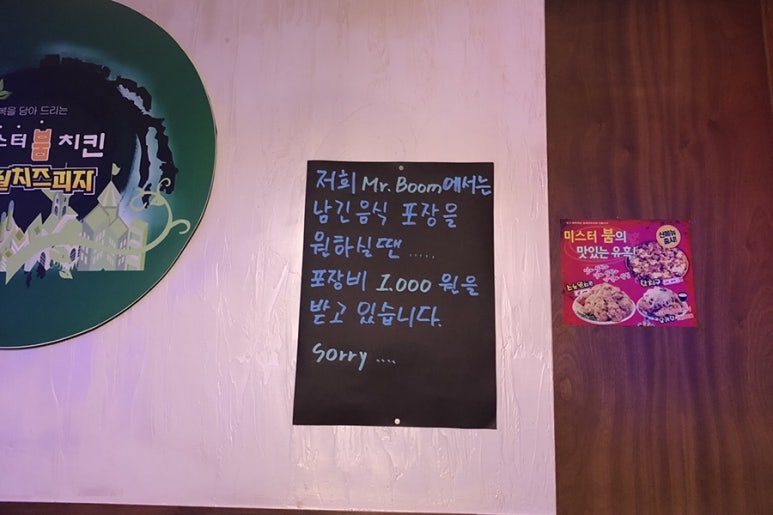 복을 담아 드리는
스터 붐 치킨
치즈피자
저희 Mr. Boom에서는
남긴음식 포장을
원하실땐 .....
포장비 1.000 원을
받고 있습니다.
Sorry ....
미스터 붐의
맛있는 유혹!
신메뉴
출시!